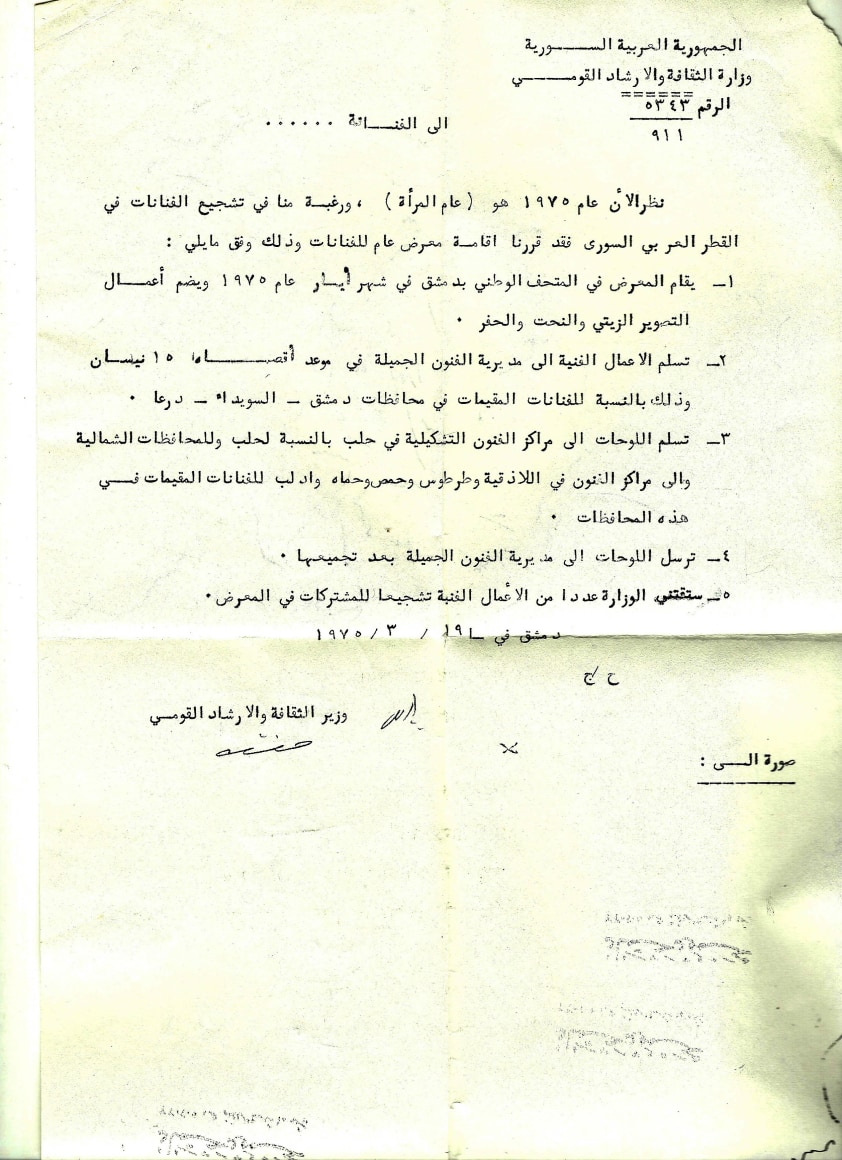 الجمهورية العربية الســـورية
وزارة الثقافة والارشاد القومـــي
======
الرقم ٥٣٤٣
٩١١
الى الفنـــانة ......
نظرا لأن عام ١٩٧٥ هو (عام المرأة) ، ورغبة منا في تشجيع الفنانات في
القطر العربي السورى فقد قررنا اقامة معرض عام للفنانات وذلك وفق مايلي :
١ــ يقام المعرض في المتحف الوطني بدمشق في شهر أيـار عام ١٩٧٥ ويضم أعمـــال
التصوير الزيتي والنحت والحفر .
٢ــ تسلم الاعمال الفنية الى مديرية الفنون الجميلة في موعد أقصـــاه ١٥ نيســان
وذلك بالنسبة للفنانات المقيمات في محافظات دمشق ــ السويداء ــ درعا .
٣ــ تسلم اللوحات الى مراكز الفنون التشكيلية في حلب بالنسبة لحلب وللمحافظات الشمالية
والى مراكز الفنون في اللاذقية وطرطوس وحمص وحماه وادلب للفنانات المقيمات فـــي
هذه المحافظات .
٤ــ ترسل اللوحات الى مديرية الفنون الجميلة بعد تجميعها .
٥ــ ستقتني الوزارة عددا من الأعمال الفنية تشجيعا للمشتركات في المعرض .
دمشق في ١٩ / ٣ / ١٩٧٥
ح / ج
وزير الثقافة والارشاد القومـي
صورة الـــى :